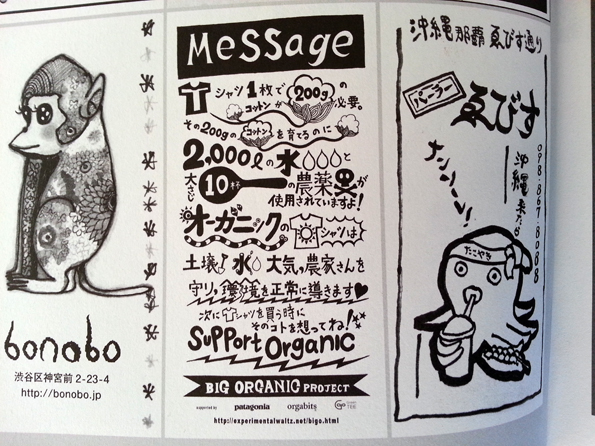 bonobo
渋谷区神宮前 2-23-4
http://bonobo.jp
Message
Tシャツ1枚で コットンが 200gの必要。
その200gの コットンを育てるのに
2,000ℓの水と
大さじ 10杯の農薬が使用されていますよ!
オーガニックの Tシャツは
土壌、水、大気、農家さんを
守り、環境を正常に導きます
次にTシャツを買う時に
そのコトを想ってね!
Support Organic
BIG ORGANIC PROJECT
supported by patagonia orgabits
http://experimentalwaltz.net/bigo.html
沖縄那覇 ゑびす通り
パーラー
ゑびす
098・867・8088
沖縄来たら
たこやき